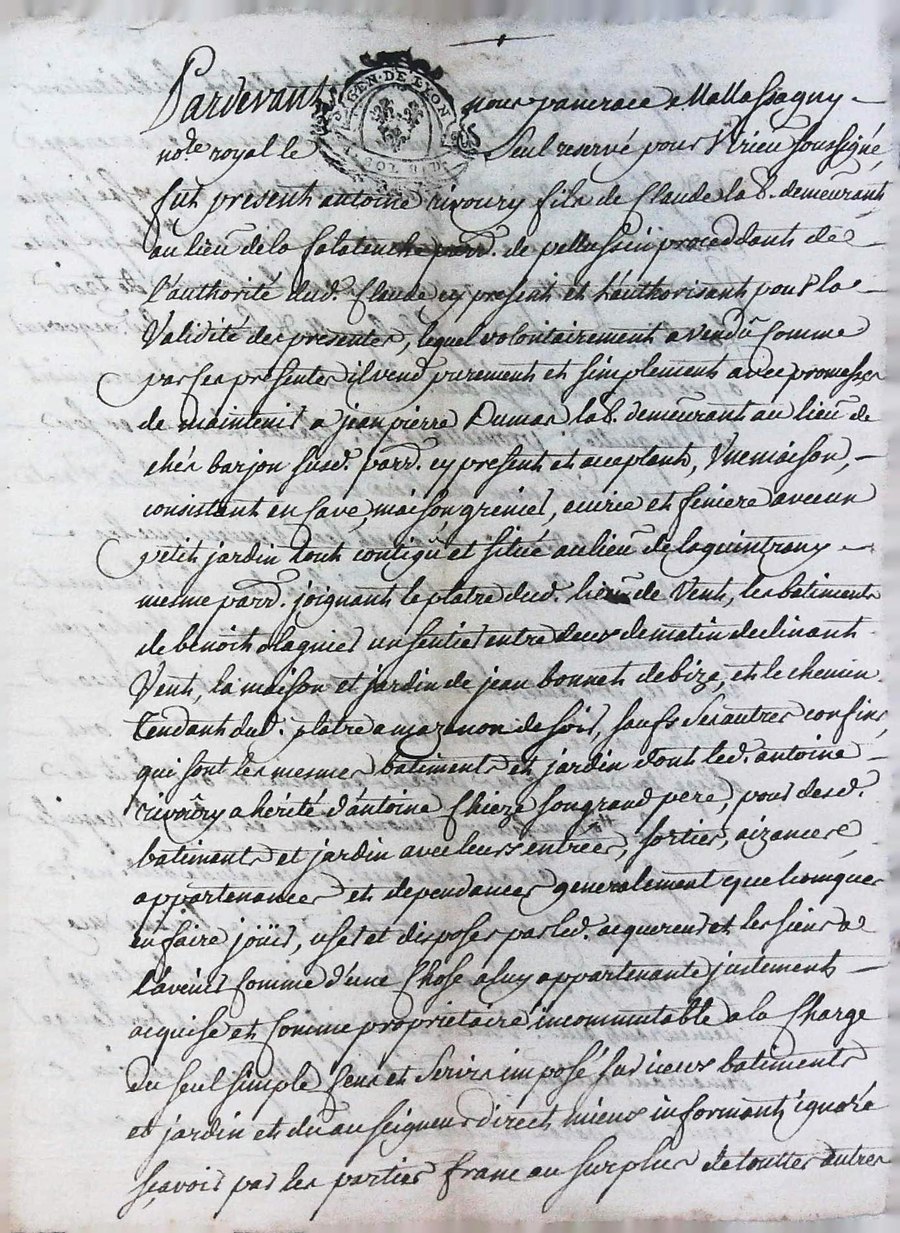 GEN. DE LYON
Pardevant nous pancrace Mallassagny
not.e royal le seul reservé pour Virieu soussigné,
fut present antoine rivoury fils de Claude lab.r demeurant
au lieu de la parr. de pellussin procedant de
l'authorité dud. Claude cy present et l'authorisant pour la
Validité des presentes, lequel volontairement a vendu comme
par ces presentes il vend purement et simplement avec promesses
de maintenir a jean pierre Dumas lab.r demeurant au lieu de
chés barjon susd. parr. cy present et acceptant, Une maison,
consistant en cave, maison, grenier, ecurie et feniere avec un
petit jardin tout contigu et situé au lieu de la quintrany
mesme parr. joignant le platre dud. lieu de Vent, les batiments
de benoit un sentier entre deux de matin declinant
Vent, la maison et jardin de jean bonnet de bize, et le chemin
tendant dud. platre a de soir, saufs ses autres confins,
qui sont les mesmes batiments et jardin dont led. antoine
rivoury a hérité d'antoine Chieze son grand pere, pour desd.
batiments et jardin avec leurs entrées, sorties, aizances,
appartenances et dependances generalement quelconques
en faire joüir, user et disposer par led. acquereur et les siens a
l'avenir comme d'une Chose a luy appartenante justement
acquise et comme proprietaire incommutable a la Charge
du seul simple cens et servis imposé sur iceux batiments
et jardin et du au seigneur direct mieux informant ignoré
sçavoir par les parties franc au surplus de touttes autres